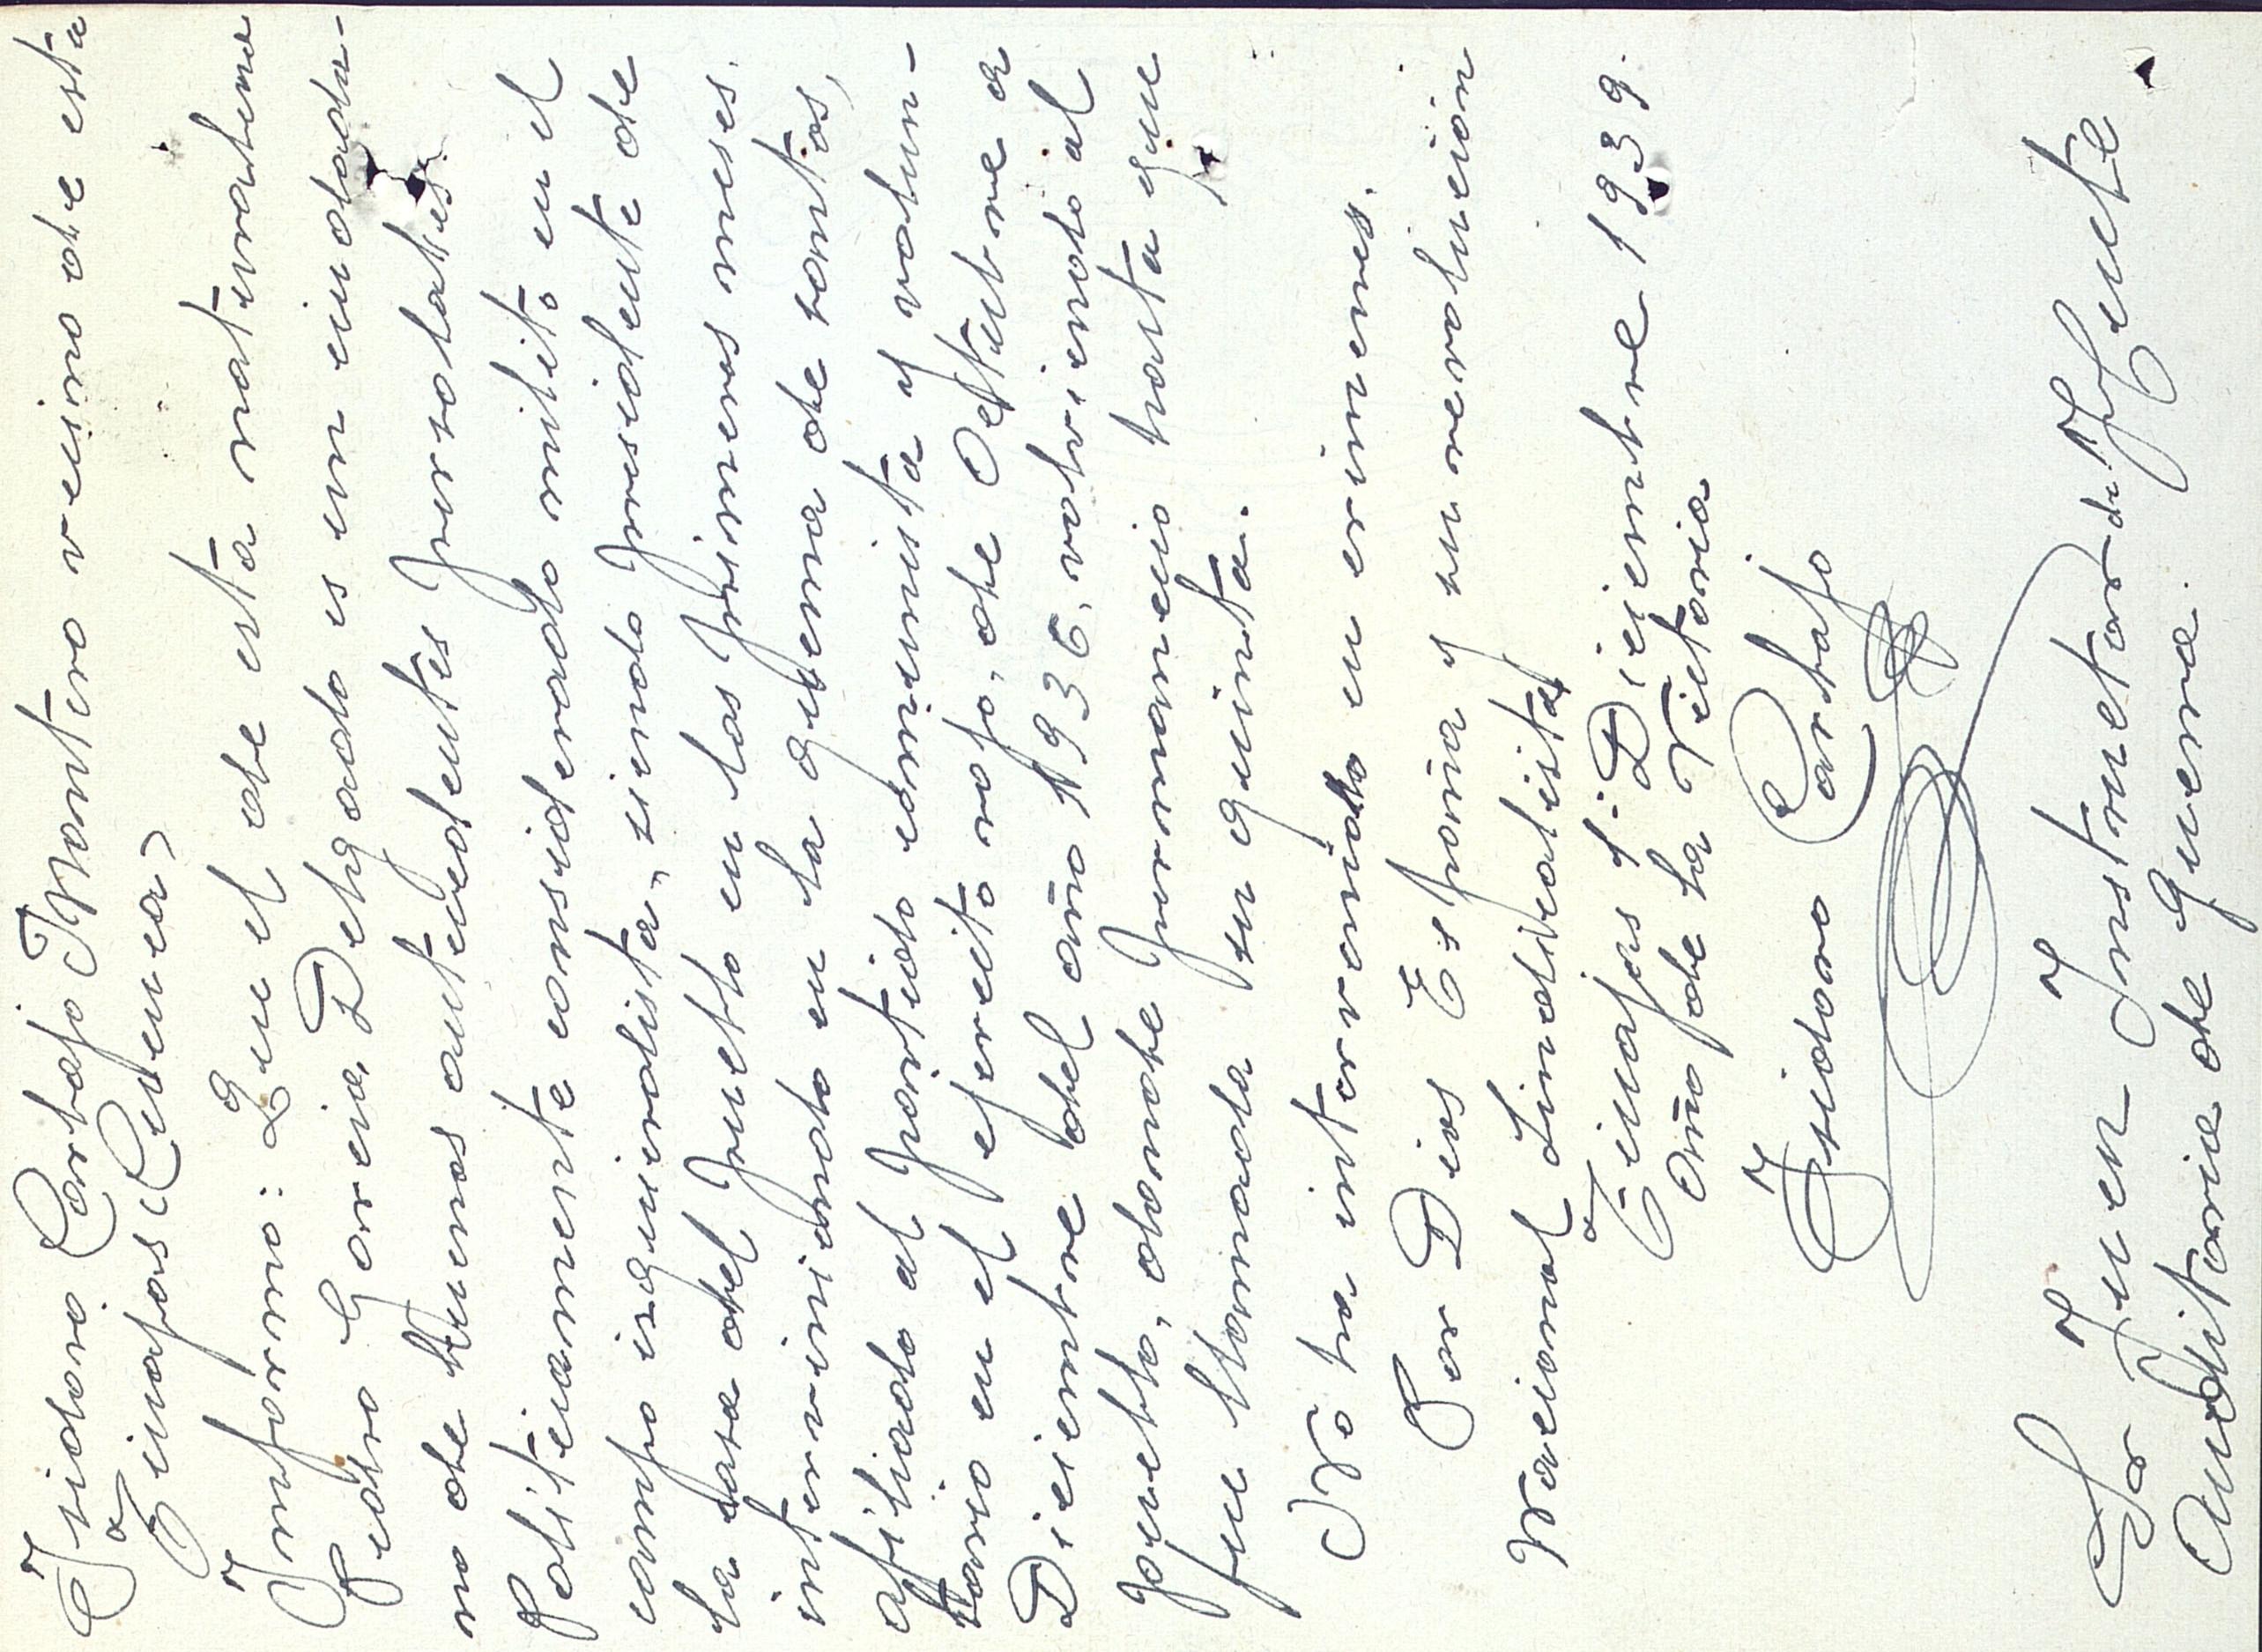 Isidoro Carbajo Montero vecino de esta
Tinajas (Cuenca)
Informo: Que el de esta naturaleza
Pedro Garcia Delgado es un ciudada-
no de buenos antecedentes personales
Politicamente considerado milito en el
campo izquierdista, siendo presidente de
la casa del pueblo en los primeros meses.
interviniendo en la quema de santos,
afiliado al partido comunista y volun-
tario en el ejercito rojo, de Octubre a
Diciembre del año 1936, volviendo al
pueblo, donde permanecio hasta que
fue llamada su quinta.
No ha intervenido en crimenes.
Por Dios España y su revolucion
Nacional Sindicalista
Tinajas 1- Diciembre 1939.
Año de la Victoria
Isidoro Carbajo
Sr Juez Instructor del Juzte
Auditoria de Guerra.